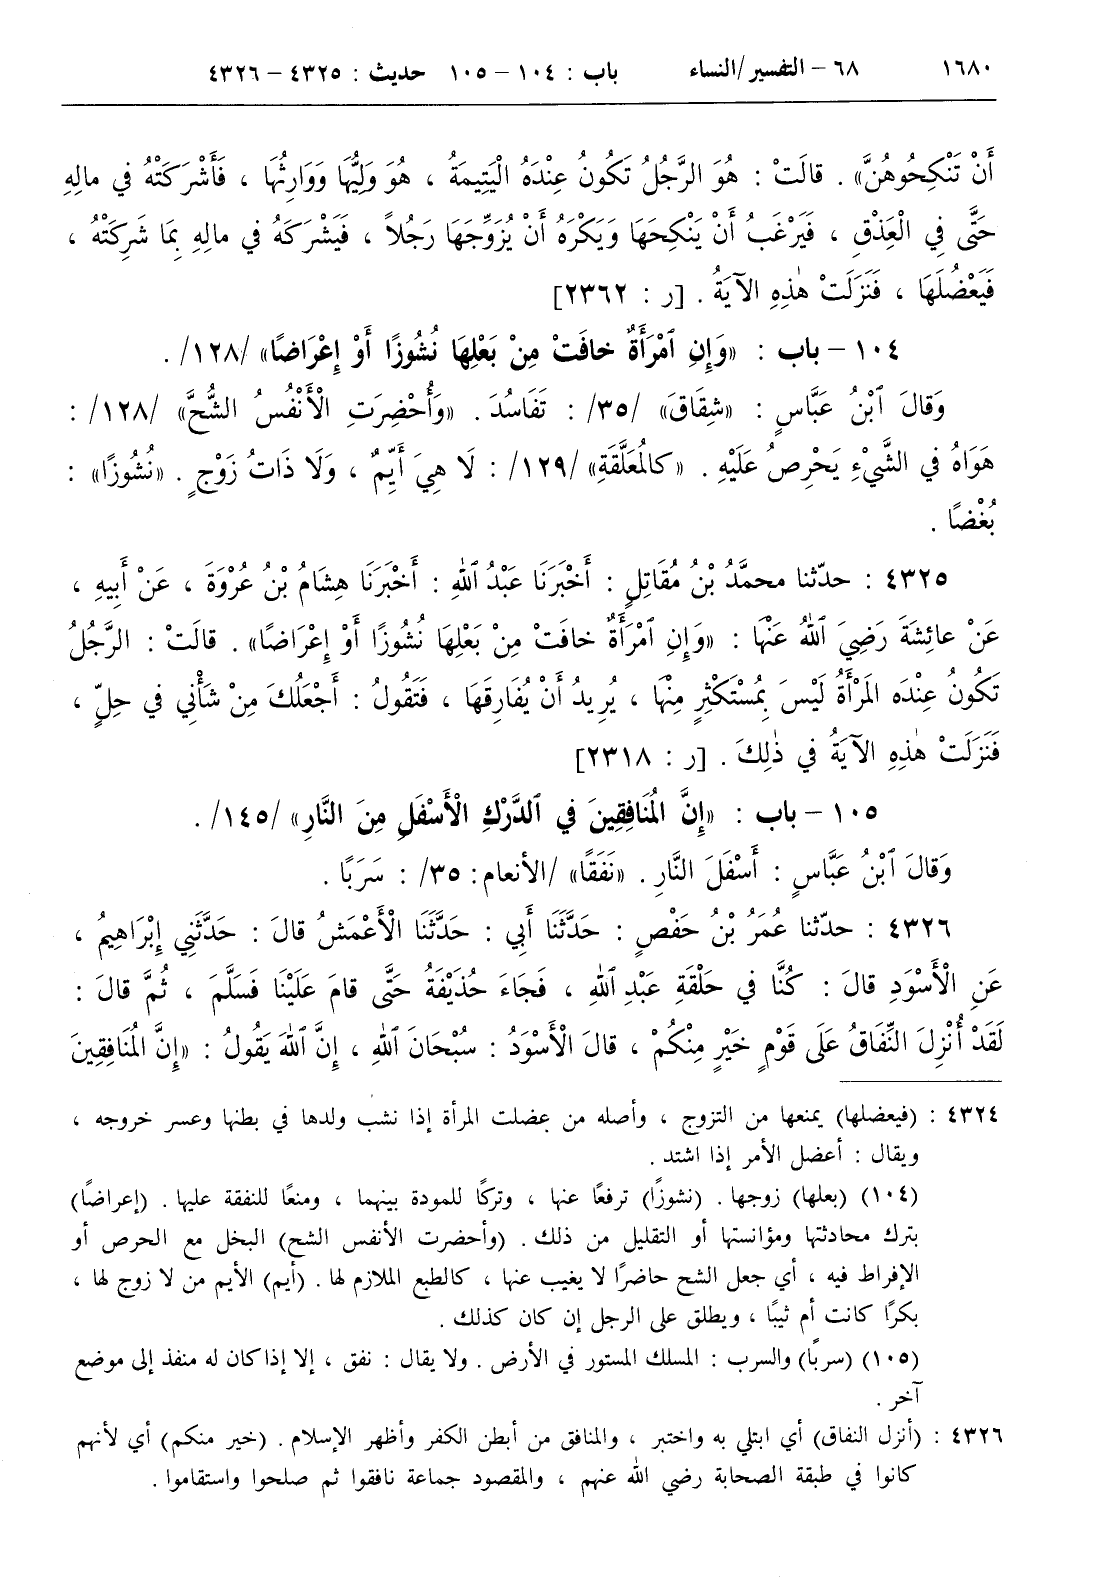 ١٦٨٠ ٦٨ – التفسير/النساء باب : ١٠٤ – ١٠٥ حديث : ٤٣٢٥ – ٤٣٢٦
أَنْ تَنْكِحُوهُنَّ» . قالَتْ : هُوَ الرَّجُلُ تَكُونُ عِنْدَهُ الْيَتِيمَةُ ، هُوَ وَلِيُّهَا وَوَارِثُهَا ، فَأَشْرَكَتْهُ في مالِهِ
حَتَّى فِي الْعِذْقِ ، فَيَرْغَبُ أَنْ يَنْكِحَهَا وَيَكْرَهُ أَنْ يُزَوِّجَهَا رَجُلاً ، فَيَشْرَكَهُ في مالِهِ بِمَا شَرِكَتْهُ ،
فَيَعْضُلَهَا ، فَنَزَلَتْ هٰذِهِ الآيَةُ . [ر : ٢٣٦٢]
١٠٤ – باب : «وَإِنِ ٱمْرَأَةٌ خافَتْ مِنْ بَعْلِهَا نُشُوزًا أَوْ إِعْرَاضًا» /١٢٨/ .
وَقالَ ٱبْنُ عَبَّاسٍ : «شِقَاقَ» /٣٥/ : تَفَاسُدَ . «وَأُحْضِرَتِ الْأَنْفُسُ الشُّحَّ» /١٢٨/ :
هَوَاهُ في الشَّيْءِ يَحْرِصُ عَلَيْهِ . «كالمُعَلَّقَةِ» /١٢٩/ : لَا هِيَ أَيِّمٌ ، وَلَا ذَاتُ زَوْجٍ . «نُشُوزًا» :
بُغْضًا .
٤٣٢٥ : حدّثنا محمَّدُ بْنُ مُقَاتِلٍ : أَخْبَرَنَا عَبْدُ ٱللهِ : أَخْبَرَنَا هِشَامُ بْنُ عُرْوَةَ ، عَنْ أَبِيهِ ،
عَنْ عائِشَةَ رَضِيَ ٱللهُ عَنْهَا : «وَإِنِ ٱمْرَأَةٌ خافَتْ مِنْ بَعْلِهَا نُشُوزًا أَوْ إِعْرَاضًا» . قالَتْ : الرَّجُلُ
تَكُونُ عِنْدَهُ المَرْأَةُ لَيْسَ بِمُسْتَكْثِرٍ مِنْهَا ، يُرِيدُ أَنْ يُفَارِقَهَا ، فَتَقُولُ : أَجْعَلُكَ مِنْ شَأْنِي في حِلٍّ ،
فَنَزَلَتْ هٰذِهِ الآيَةُ في ذٰلِكَ . [ر : ٢٣١٨]
١٠٥ – باب : «إِنَّ المُنَافِقِينَ في ٱلدَّرْكِ الْأَسْفَلِ مِنَ النَّارِ» /١٤٥/ .
وَقالَ ٱبْنُ عَبَّاسٍ : أَسْفَلَ النَّارِ . «نَفَقًا» /الأنعام: ٣٥/ : سَرَبًا .
٤٣٢٦ : حدّثنا عُمَرُ بْنُ حَفْصٍ : حَدَّثَنَا أَبي : حَدَّثَنَا الْأَعْمَشُ قالَ : حَدَّثَنِي إِبْرَاهِيمُ ،
عَنِ الْأَسْوَدِ قالَ : كُنَّا في حَلْقَةِ عَبْدِ ٱللهِ ، فَجَاءَ حُذَيْفَةُ حَتَّى قامَ عَلَيْنَا فَسَلَّمَ ، ثُمَّ قالَ :
لَقَدْ أُنْزِلَ النِّفَاقُ عَلَى قَوْمٍ خَيْرٍ مِنْكُمْ ، قالَ الْأَسْوَدُ : سُبْحَانَ ٱللهِ ، إِنَّ ٱللهَ يَقُولُ : «إِنَّ المُنَافِقِينَ
٤٣٢٤ : (فيعضلها) يمنعها من التزوج ، وأصله من عضلت المرأة إذا نشب ولدها في بطنها وعسر خروجه ،
ويقال : أعضل الأمر إذا اشتد .
(١٠٤) (بعلها) زوجها . (نشوزًا) ترفعًا عنها ، وتركًا للمودة بينهما ، ومنعًا للنفقة عليها . (إعراضًا)
بترك محادثتها ومؤانستها أو التقليل من ذلك . (وأحضرت الأنفس الشح) البخل مع الحرص أو
الإفراط فيه ، أي جعل الشح حاضرًا لا يغيب عنها ، كالطبع الملازم لها . (أيم) الأيم من لا زوج لها ،
بكرًا كانت أم ثيبًا ، ويطلق على الرجل إن كان كذلك .
(١٠٥) (سربًا) والسرب : المسلك المستور في الأرض . ولا يقال : نفق ، إلا إذا كان له منفذ إلى موضع
آخر .
٤٣٢٦ : (أنزل النفاق) أي ابتلي به واختبر ، والمنافق من أبطن الكفر وأظهر الإسلام . (خير منكم) أي لأنهم
كانوا في طبقة الصحابة رضي الله عنهم ، والمقصود جماعة نافقوا ثم صلحوا واستقاموا .